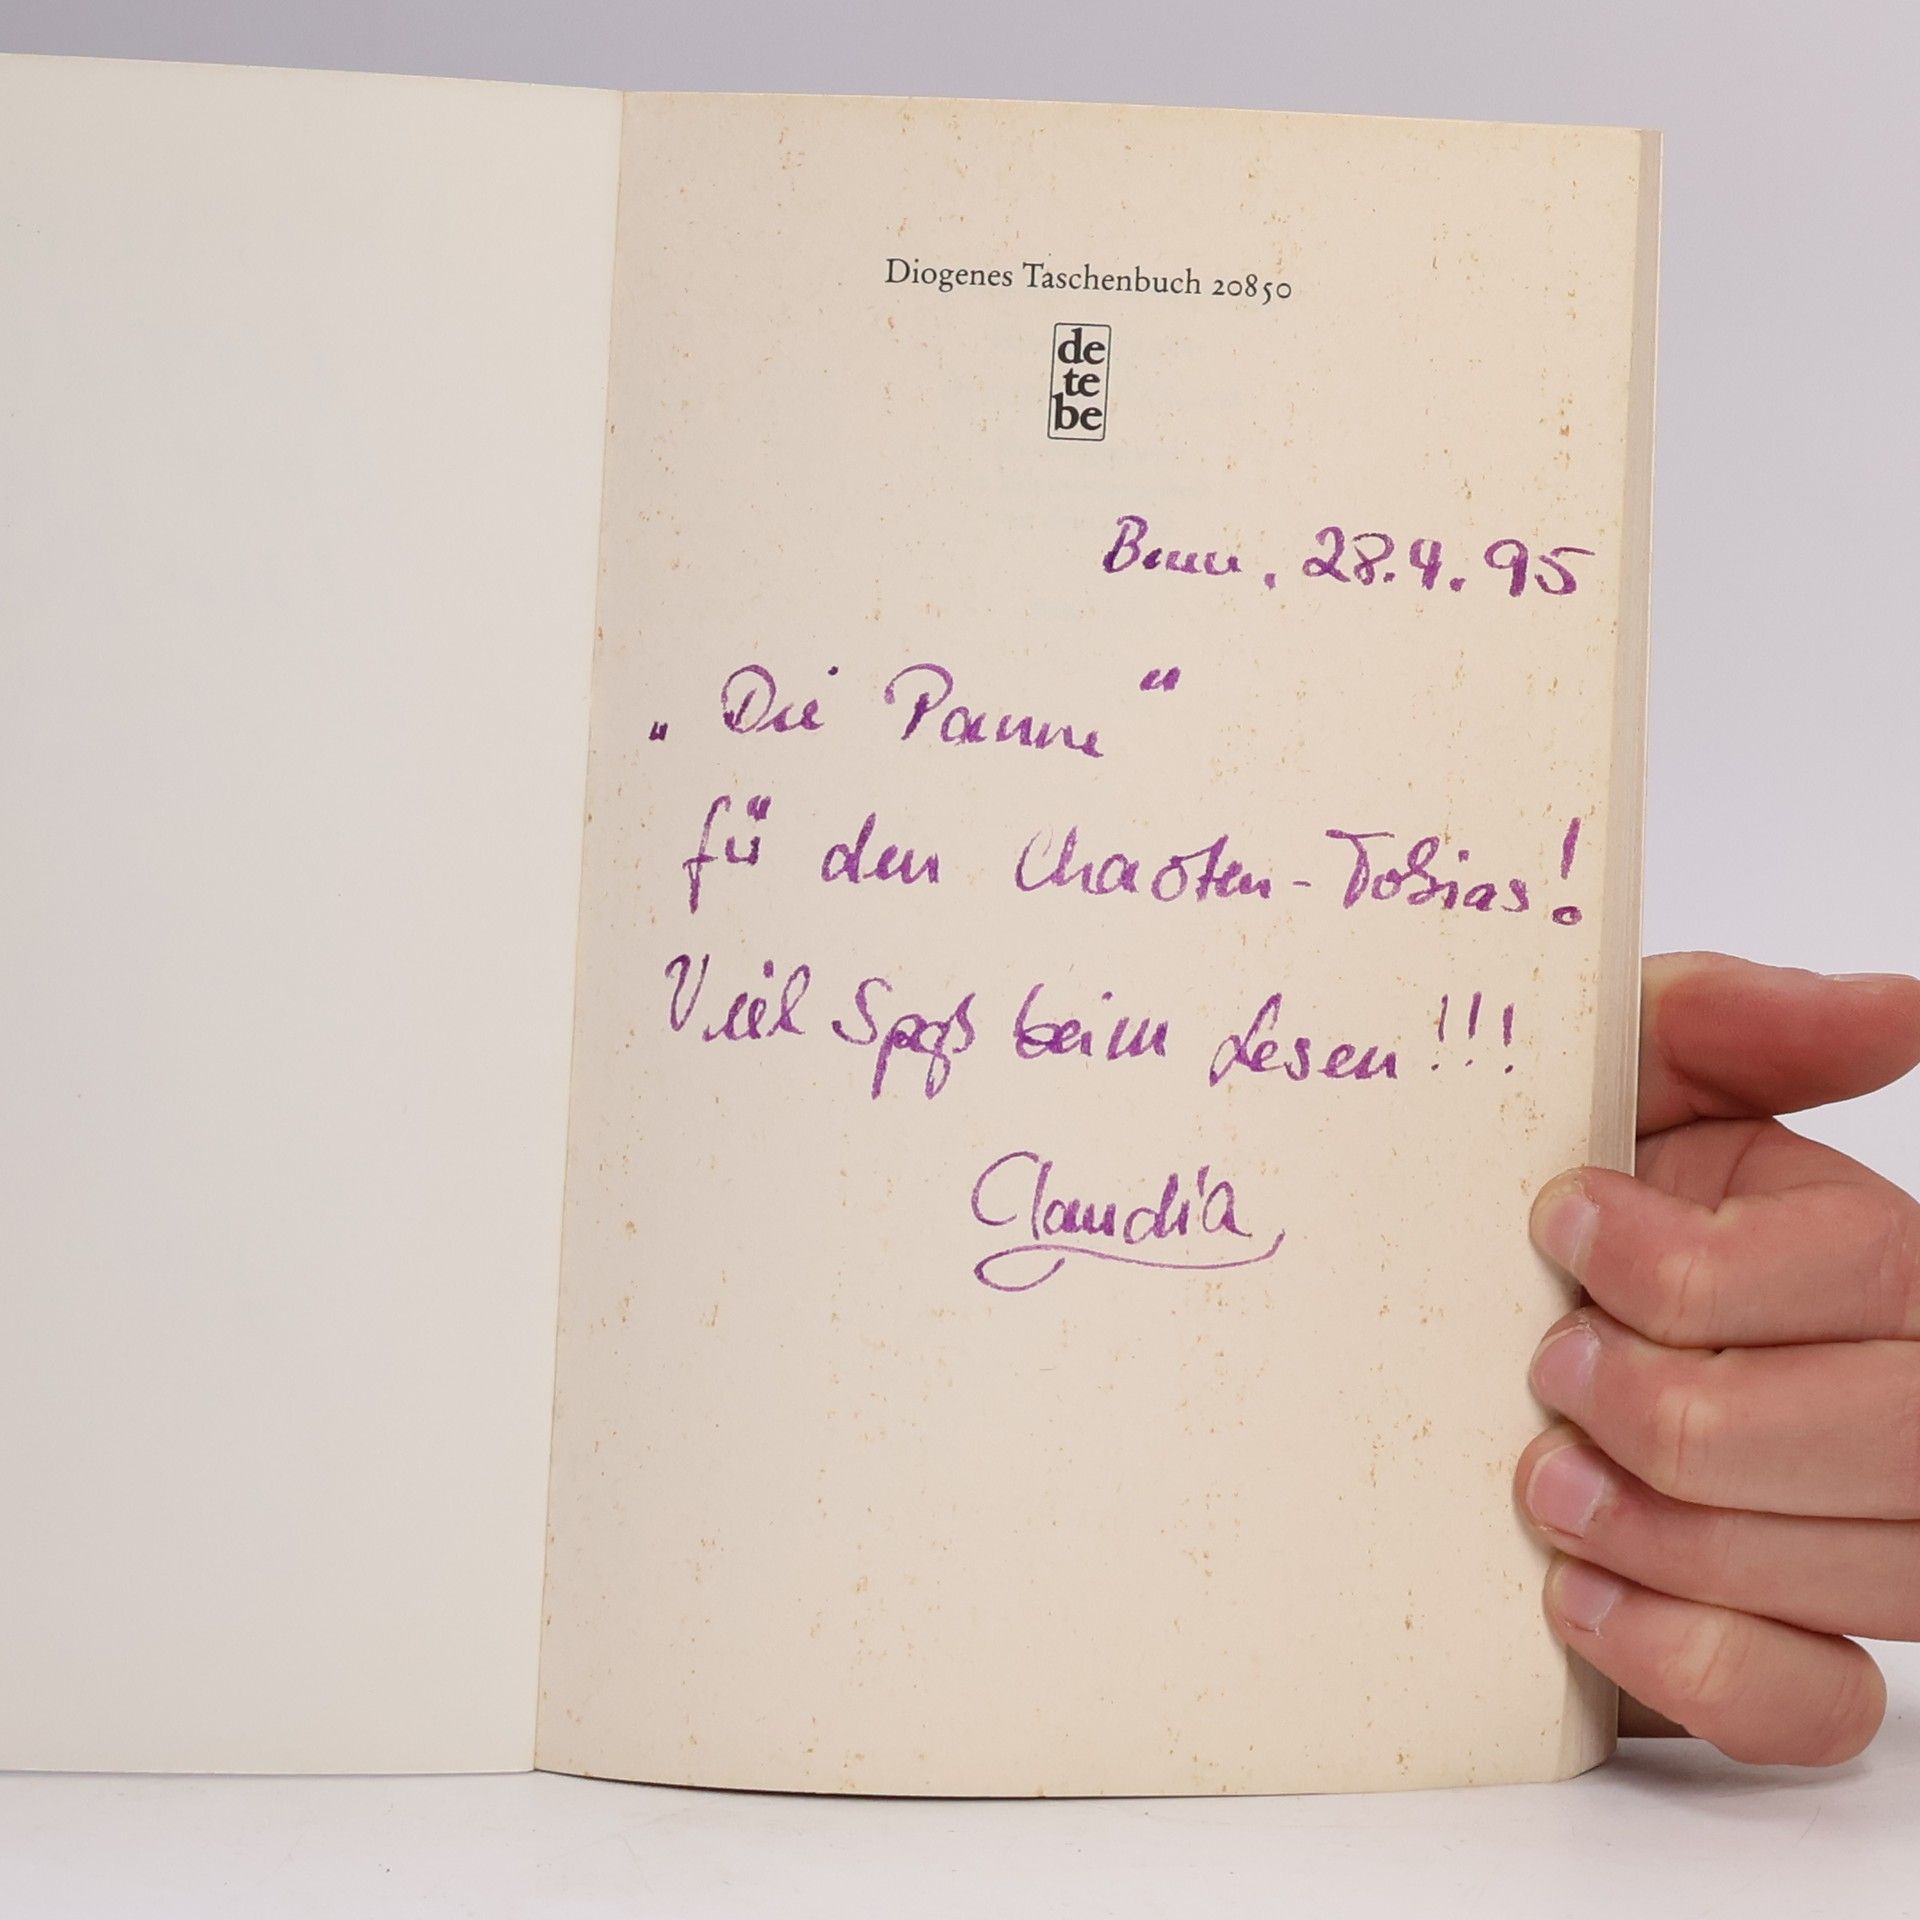 Diogenes Taschenbuch 20850
de
te
be
Bonn, 28.4.95
„Die Panne“
für den Chaoten-Tobias!
Viel Spaß beim Lesen!!!
Claudia